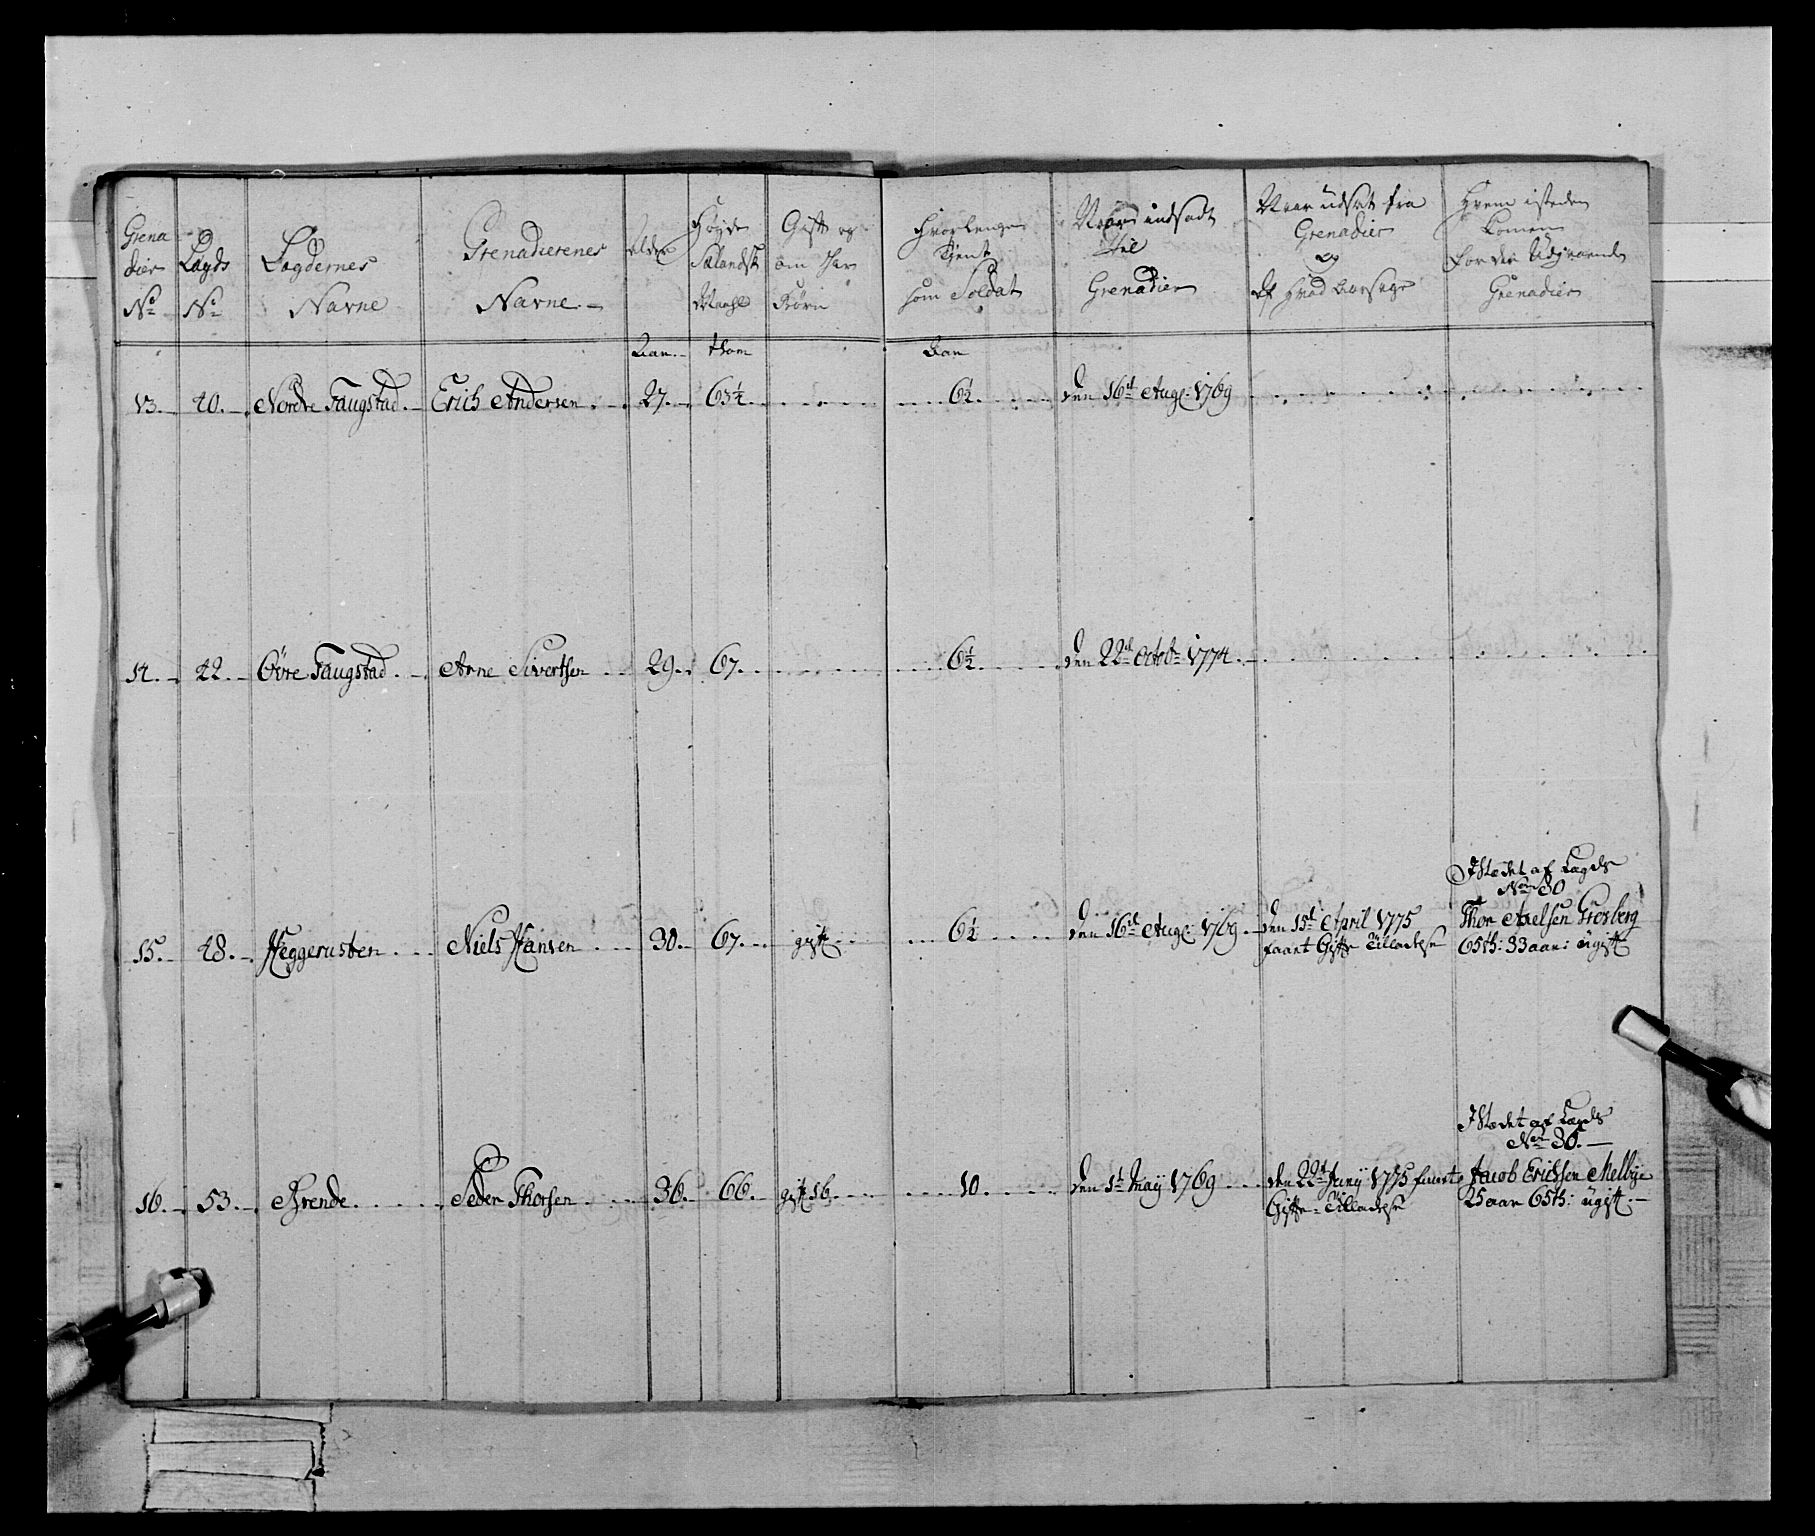 Grena
dier
No
Lægds
No
Lægdernes
Navne
Grenadierenes
Navne.
Alder
Høyde
Sælandsk
Maahl
Gift og
om har
Børn
Hvorlenge
tient
som Soldat
Naar indsadt
til
Grenadier
Naar udsat fra
Grenadier
og
af hvad Aarsage
Hvem isteden
komen
for den Udgaaende
Grenadier
Aar. tom Aar
13. 40. Nordre Faugstad. Erich Andersen. 27. 65¼. 6½. den 16de Aug: 1769
14. 42. Øvre Faugstad. Arne Sivertsen 29. 67. 6½. den 22de Octobr 1774.
15. 48. Heggerusten. Niels Hansen. 30. 67. gift. 6½. den 16de Aug: 1769. den 15de April 1775
faaet Gifte Tilladelse
I Stædet af Lægds
No 30
Thor Axelsen
65 t: 33 aar: ugift
16. 53. Brende. Peder Thorsen. 36. 66. gift 1 b. 10. den 1te May 1769 den 22de Juny 1775 faaet
Gifte-Tilladelse
I Stædet af Lægds
No 36.
Jacob Erichsen Melbye
25 aar 65 t: ugift.